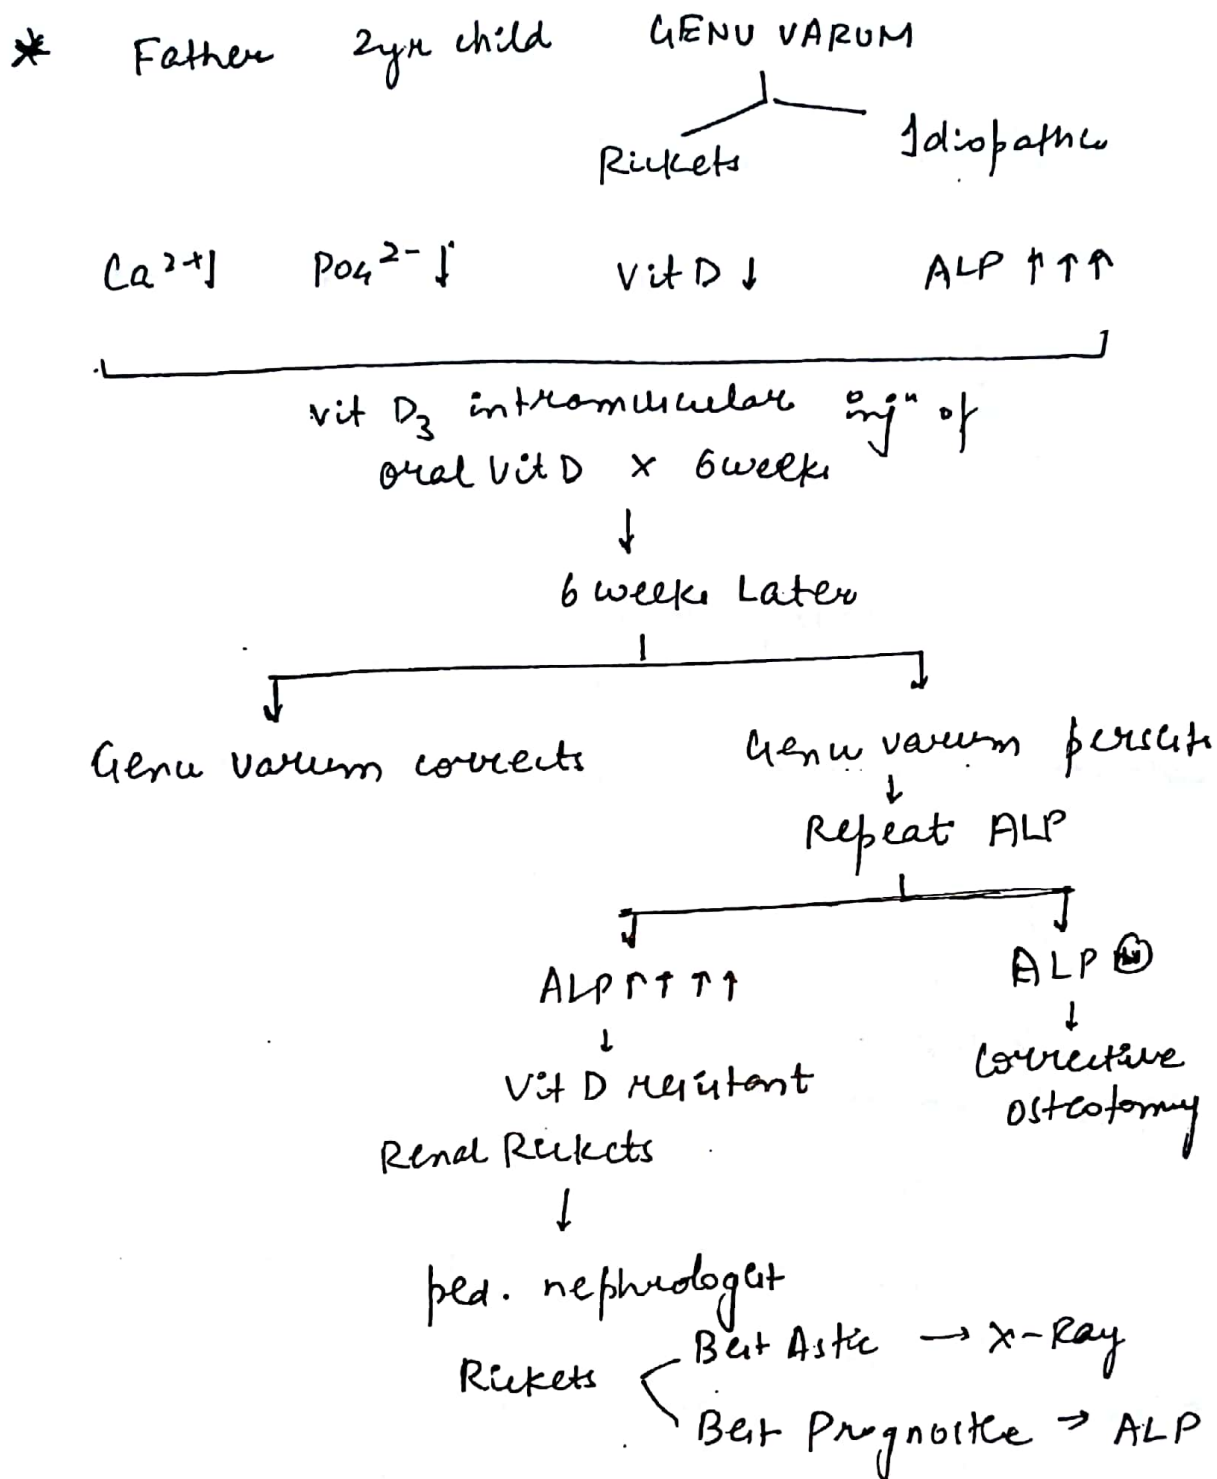 * Father 2yr child GENU VARUM
Rickets Idiopathic
Ca²⁺↓ PO₄²⁻↓ Vit D ↓ ALP ↑↑↑
vit D₃ intramuscular injⁿ of
oral Vit D x 6 weeks
↓
6 weeks Later
Genu varum corrects Genu varum persists
↓
Repeat ALP
ALP ↑↑↑↑ ALP Ⓝ
↓ ↓
Vit D resistant Corrective
Renal Rickets osteotomy
↓
ped. nephrologist
Rickets Best Δstic → X-Ray
Best Prognostic → ALP